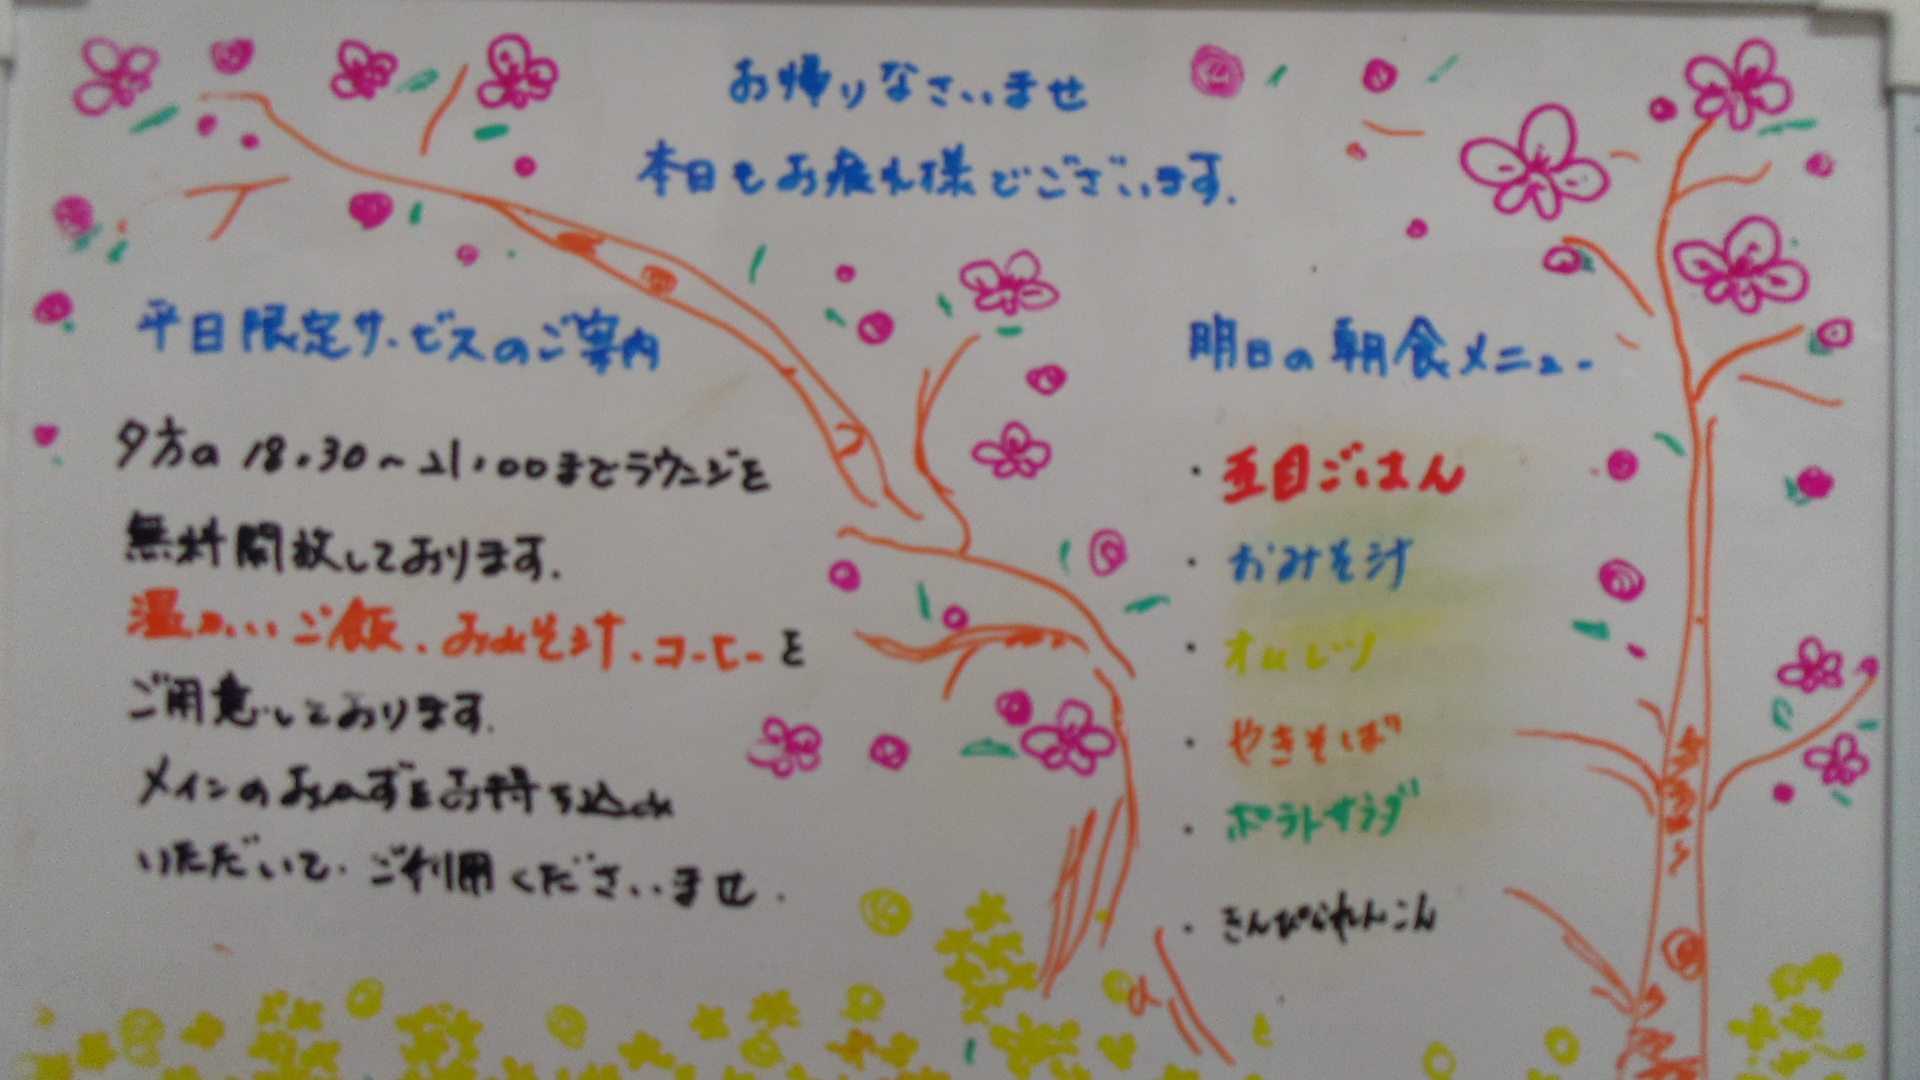 お帰りなさいませ
本日もお疲れ様でございます.
平日限定サービスのご案内
夕方の18:30～21:00までラウンジを
無料開放しております.
温かいご飯、おみそ汁、コーヒーを
ご用意しております.
メインのおかずをお持ち込み
いただいて、ご利用くださいませ.
明日の朝食メニュー
・五目ごはん
・おみそ汁
・オムレツ
・やきそば
・ポテトサラダ
・きんぴられんこん